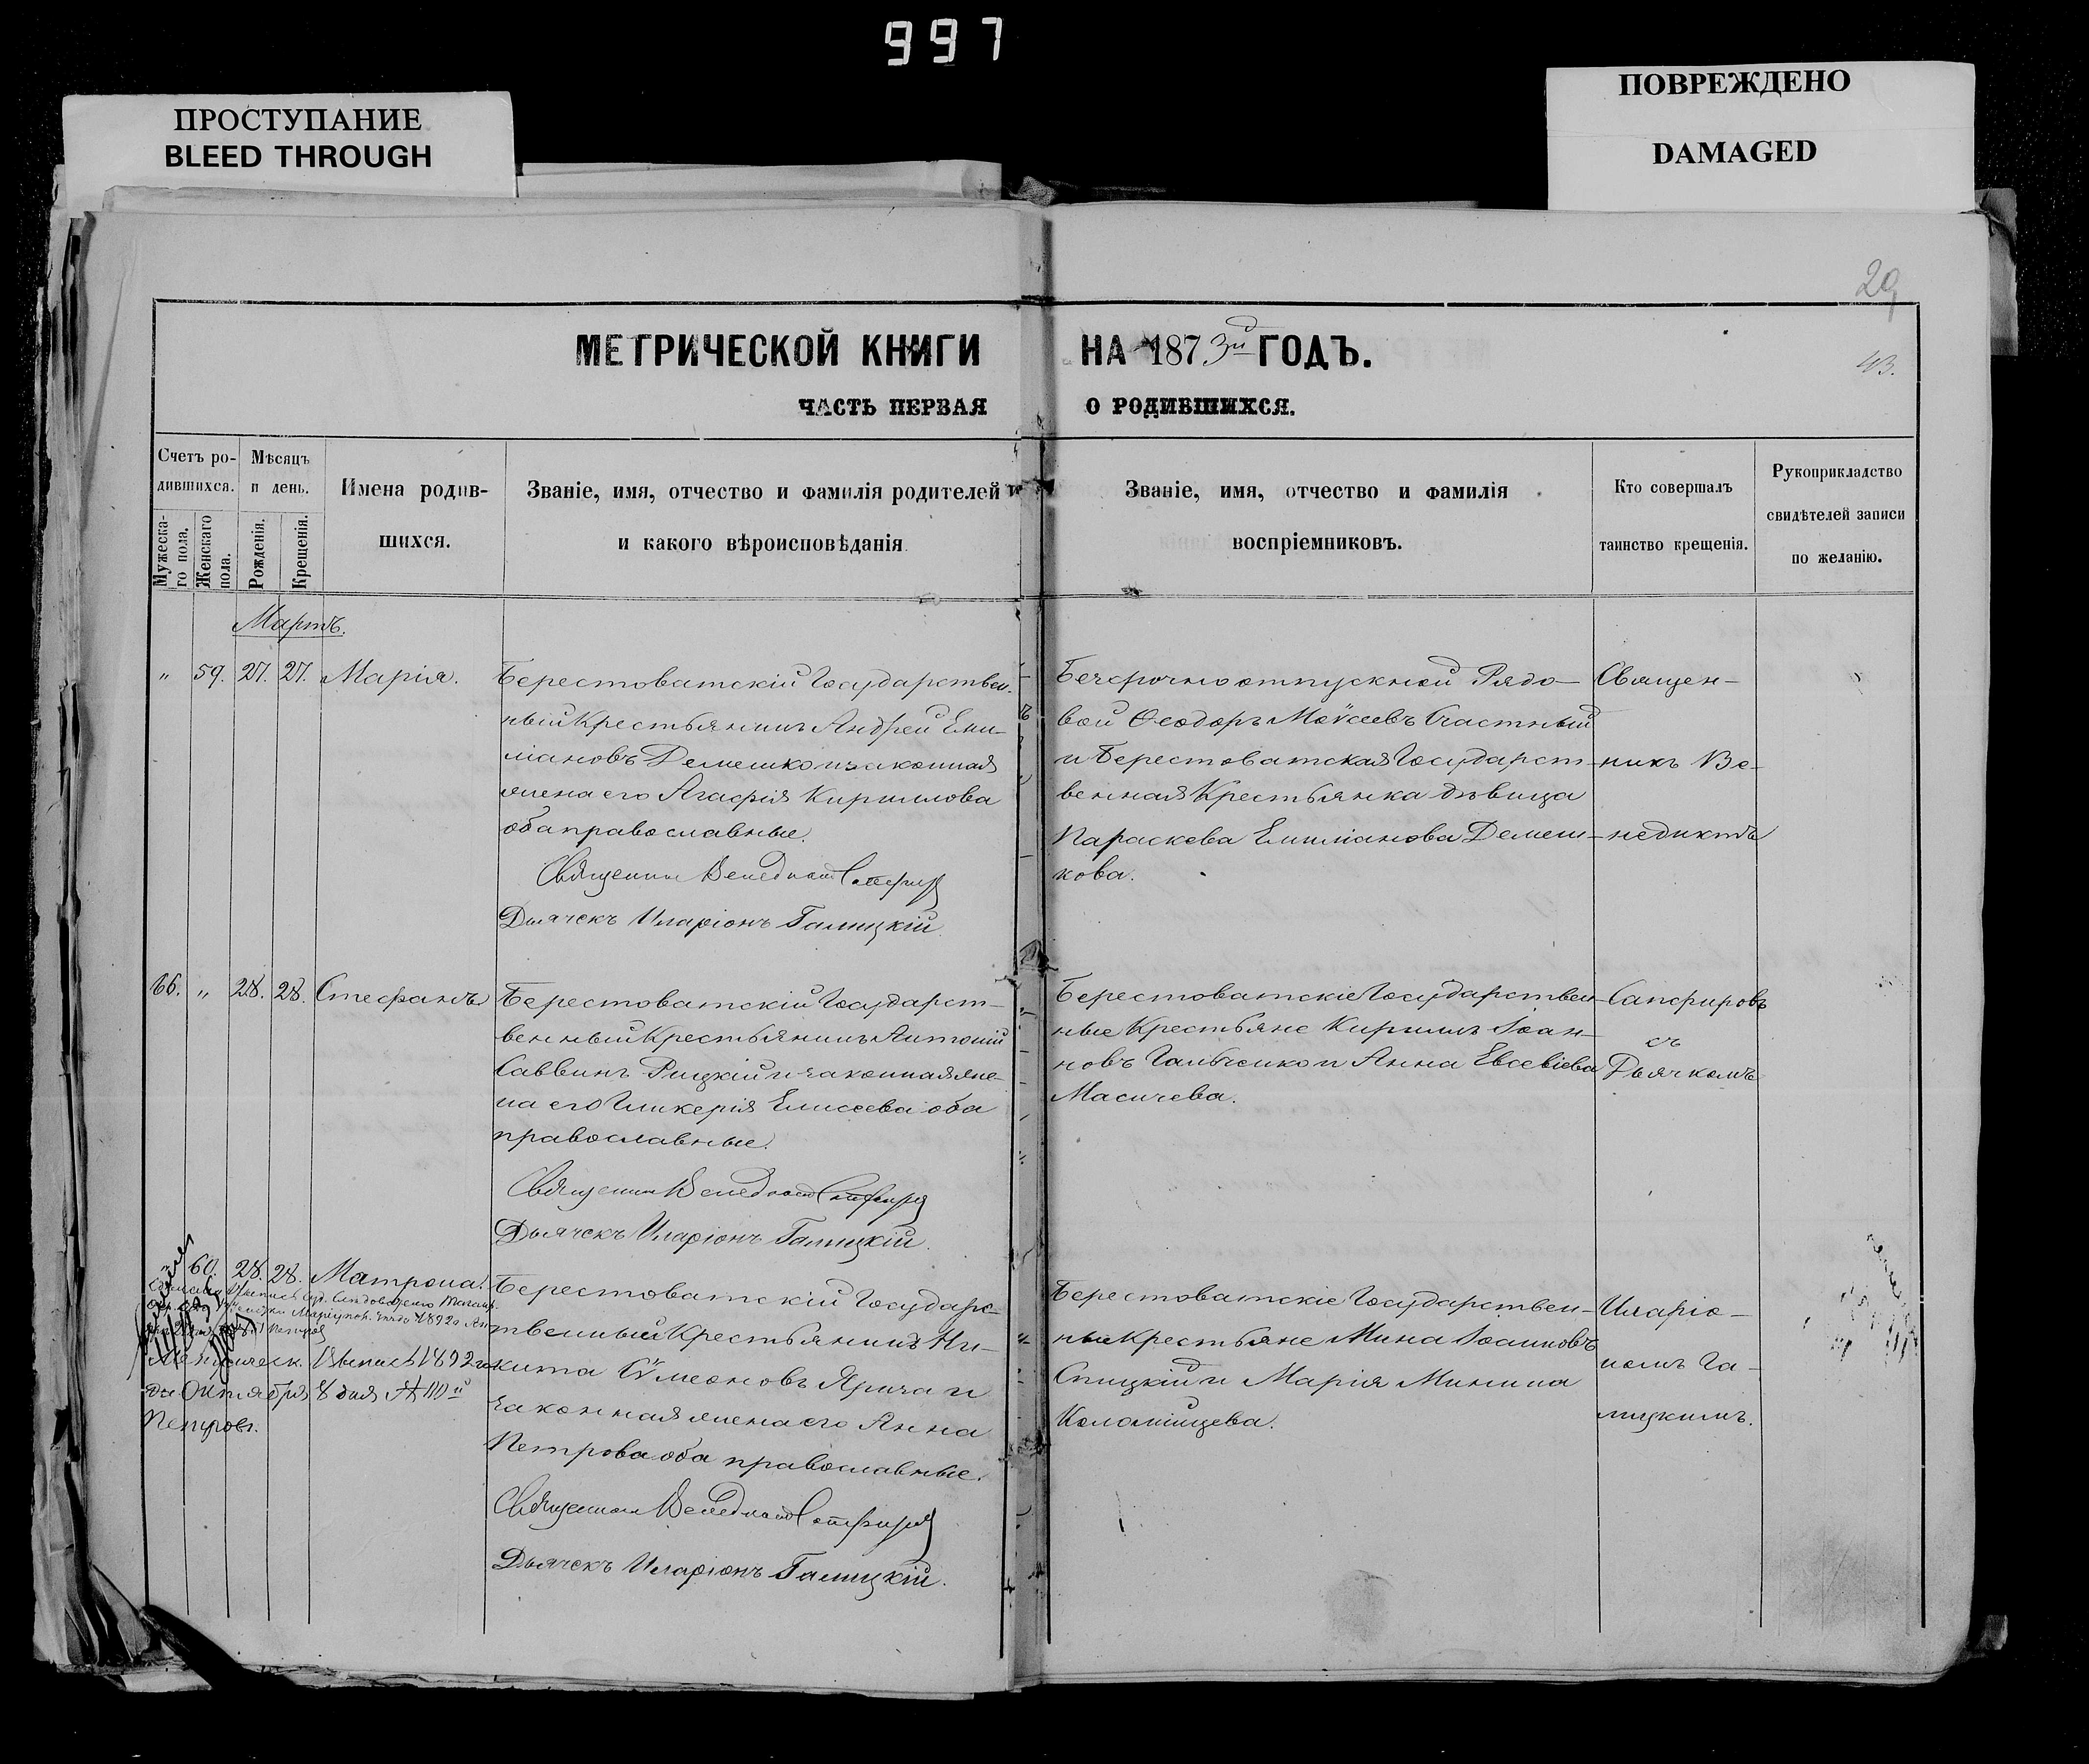 997
ПРОСТУПАНИЕ
BLEED THROUGH
ПОВРЕЖДЕНО
DAMAGED
29
43.
МЕТРИЧЕСКОЙ КНИГИ НА 1873й ГОДЪ.
ЧАСТЬ ПЕРВАЯ О РОДИВШИХСЯ.
Счетъ ро-
дившихся.
Мужеска-
го пола.
Женскаго
пола.
Мѣсяцъ
и день.
Рожденія.
Крещенія.
Имена родив-
шихся.
Званіе, имя, отчество и фамилія родителей и
и какого вѣроисповѣданія
Званіе, имя, отчество и фамилія
воспріемниковъ.
Кто совершалъ
таинство крещенія.
Рукоприкладство
свидѣтелей записи
по желанію.
Мартъ.
„ 59. 27. 27. Марія.
Берестоватскій Государствен-
ный Крестьянинъ Андрей Еми-
ліановъ Демешко и законная
жена его Агафія Кириллова
оба православные.
Священник Венедикт Сапфиров
Дьячекъ Иларіонъ Галицкій
Безсрочноотпускной Рядо-
вой Ѳеодоръ Моѵсеевъ Счастный
и Берестоватская Государст-
венная Крестьянка дѣвица
Параскева Емиліанова Демеш-
кова.
Священ-
никъ Ве-
недиктъ
66. „ 28. 28. Стефанъ
Берестоватскій Государст-
венный Крестьянинъ Антоній
Саввинъ Рицкій и законная же-
на его Гликерія Елисеева оба
православные.
Священник Венедикт Сапфиров
Дьячекъ Иларіонъ Галицкій.
Берестоватскіе Государствен-
ные Крестьяне Кириллъ Іоан-
новъ Гальченко и Анна Евсевіева
Масичева.
Сапфировъ
съ
Дьячкомъ
„ 60. 28. 28. Матрона.
Берестоватскій Государс-
твенный Крестьянинъ Ни-
кита Сѵмеоновъ Ярича и
законная жена его Анна
Петрова оба православные.
Священник Венедикт Сапфиров
Дьячекъ Иларіонъ Галицкій.
Берестоватскіе Государствен-
ные Крестьяне Мина Іоанновъ
Спицкій и Марія Минина
Коломійцева.
Иларіо-
номъ Га-
лицкимъ.
1892 го-
да Октября 8 дня
Петровъ.